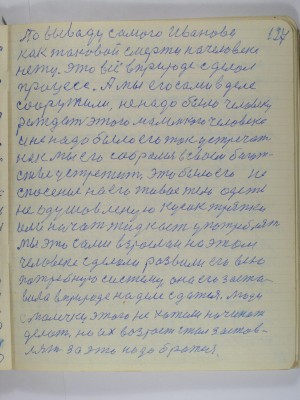 124
По выводу самого Иванову
как таковой смерти на человеке
нету. Это всё в природе сделал
процесс. А мы его сами в деле
сооружили, не надо было человеку
рождат этого маленкого человека
и не надо было его так устричат
как мы его собрался в своем багат-
стве устретит, это было его не
спасение на его живае тело одеть
не одушовленую кусак тряпки
или начат жидкаст употреблят
мы это сами взрослаи на этом
человеке сделали развили его всю
потребную систему, она его заста-
вила в природе на деле сдатся. Люди
смолечку этого не хатели начинат
делат, но их возраст стал застов-
лят за это надо братся.